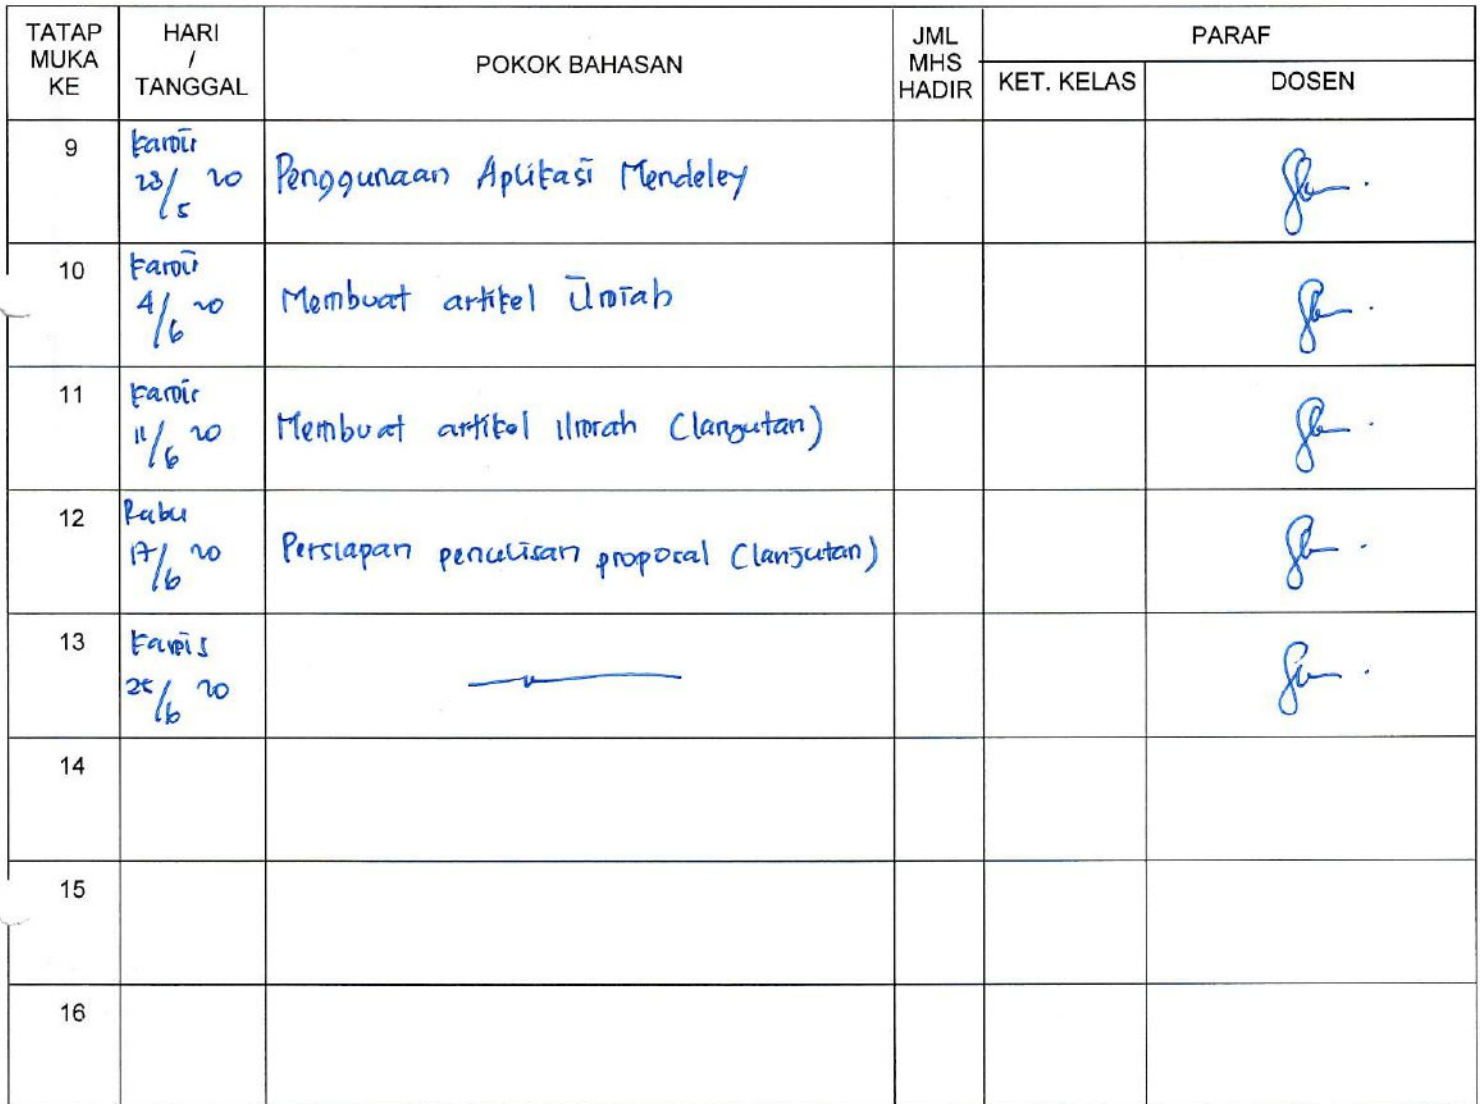 TATAP MUKA KE
HARI / TANGGAL
POKOK BAHASAN
JML MHS HADIR
PARAF
KET. KELAS
DOSEN
9
Kamis
28/5 20
Penggunaan Aplikasi Mendeley
10
Kamis
4/6 20
Membuat artikel ilmiah
11
Kamis
11/6 20
Membuat artikel ilmiah (lanjutan)
12
Rabu
17/6 20
Persiapan penulisan proposal (lanjutan)
13
Kamis
25/6 20
14
15
16